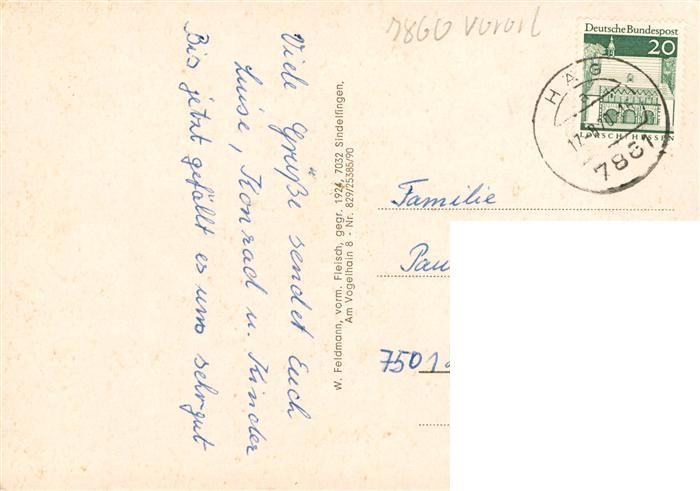 7860 Vorort
Deutsche Bundespost
20
LORSCH/HESSEN
HAG
7861
Viele Grüße sendet Euch
Luise, Konrad u. Kinder
Bis jetzt gefällt es uns sehr gut
W. Feldmann, vorm. Fleisch, gegr. 1924, 7032 Sindelfingen,
Am Vogelhain 8 - Nr. 829/25385/90
Familie
Pau
7501